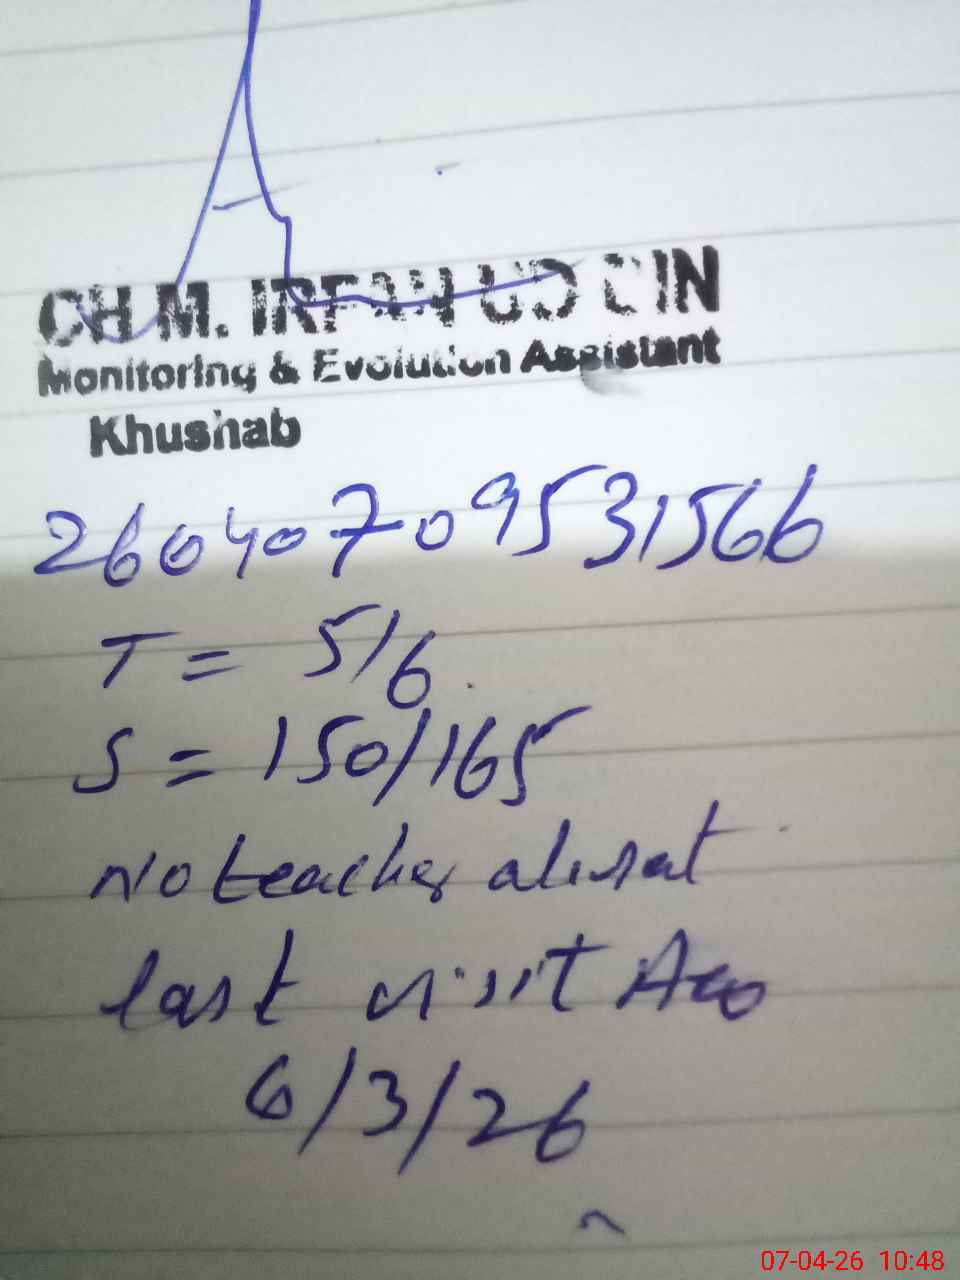 CH M. IRFAN UD DIN
Monitoring & Evolution Assistant
Khushab
26040709531566
T = 5/6
S = 150/165
No teacher absent
last visit AEO
6/3/26
07-04-26 10:48